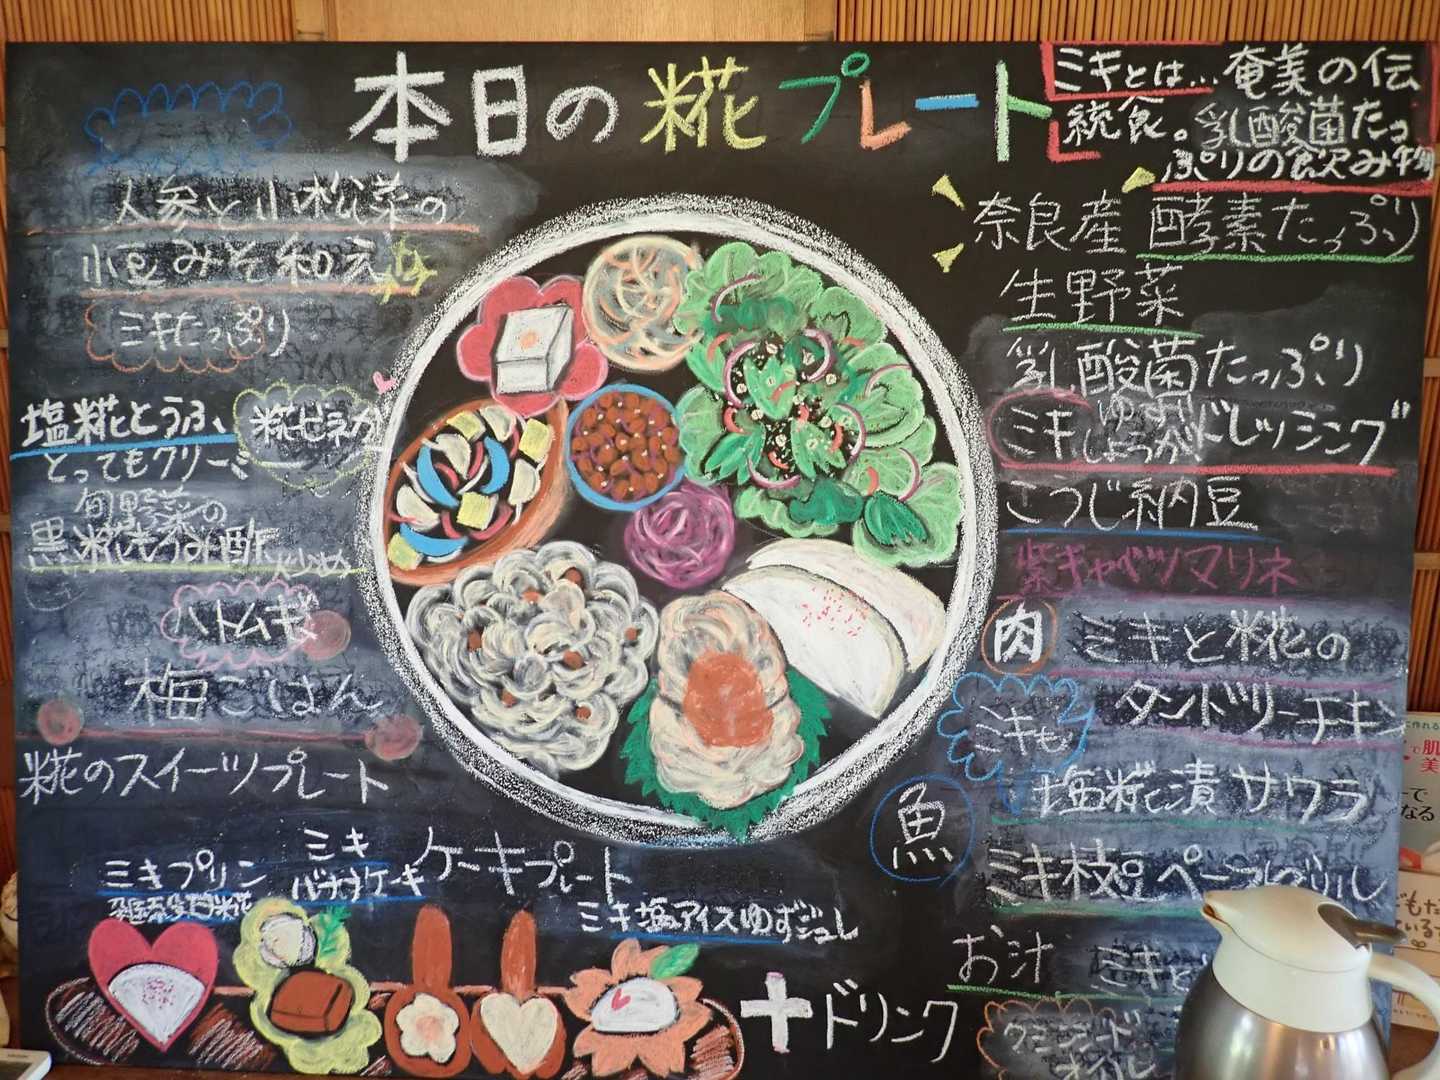 本日の糀プレート
ミキとは…奄美の伝
統食。乳酸菌たっ
ぷりの飲み物
人参と小松菜の
小豆みそ和え
ミキたっぷり
塩糀とうふ、
とってもクリーミー
旬野菜の
黒糀もろみ酢炒め
ハトムギ
梅ごはん
糀のスイーツプレート
奈良産 酵素たっぷり
生野菜
乳酸菌たっぷり
ミキゆずしょうがドレッシング
こうじ納豆
紫キャベツマリネ
肉 ミキと糀の
タンドリーチキン
ミキも
魚 塩糀漬サワラ
ミキ枝豆ペースト
お汁 ミキと
ケーキプレート
ミキプリン
ミキ
バナナケーキ
ミキ塩アイスゆずジュレ
+ドリンク
オイル